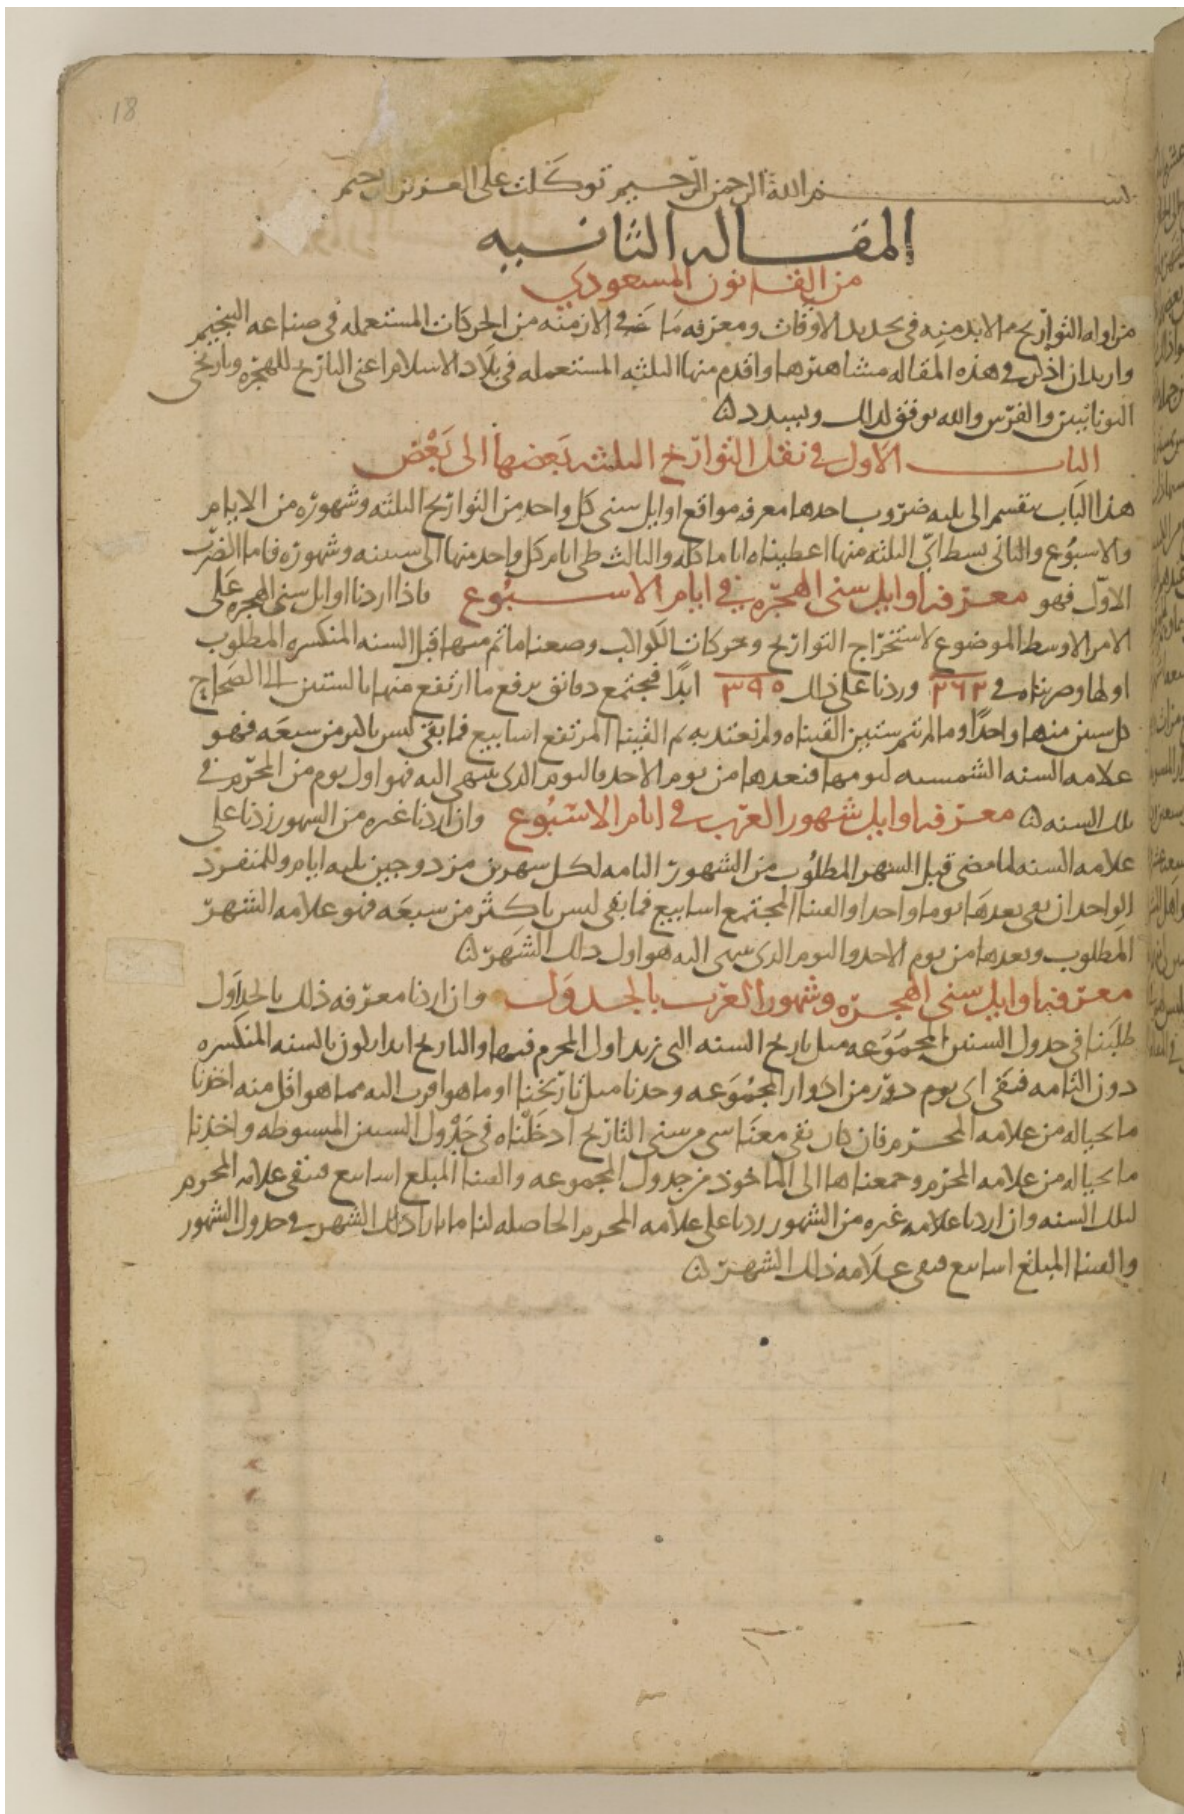 18
بسم الله الرحمن الرحيم توكلت على العزيز الرحيم
المقاله الثانيه
من القانون المسعودي
مزاوله التواريخ مما لابد منه في تحديد الاوقات ومعرفه ما في الازمنه من الحركات المستعمله في صناعه التنجيم
واريد ان اذكر في هذه المقاله مشاهيرها واقدم منها الثلثه المستعمله في بلاد الاسلام اعني التاريخ للهجره وتاريخي
اليونانيين والفرس والله يوفق لذلك ويسدد
الباب الاول في نقل التواريخ الثلثه بعضها الى بعض
هذا الباب ينقسم الى ثلثه ضروب احدها معرفه مواقع اوايل سني كل واحد من التواريخ الثلثه وشهوره من الايام
والاسبوع والثاني بسط اي الثلثه منها اعطيناه اياما كله والثالث طي ايام كل واحد منها الى سنينه وشهوره فاما الضرب
الاول فهو معرفه اوايل سني الهجره في ايام الاسبوع فاذا اردنا اوايل سني الهجره على
الامر الاوسط الموضوع لاستخراج التواريخ وحركات الكواكب وضعنا ما تم منها قبل السنه المنكسره المطلوب
اولها وضربناه في ٢٦٢ وزدنا على ذلك ٣٩٥ ابدا فيجتمع دقائق يرفع ما ارتفع منها بالستين الى الصحاح
كل ستين منها واحدا وما لم يتم ستين القيناه ولم نعتد به ثم القينا المرتفع اسابيع فما بقي ليس باكثر من سبعه فهو
علامه السنه الشمسيه ليومها فنعدها من يوم الاحد فاليوم الذي ينتهي اليه فهو اول يوم من المحرم في
تلك السنه معرفه اوايل شهور العرب في ايام الاسبوع وان اردنا غيره من الشهور زدنا على
علامه السنه لما مضى قبل الشهر المطلوب من الشهور التامه لكل شهرين مزدوجين ثلثه ايام وللمنفرد
الواحد ان بقي بعدها يوما واحدا والقينا المجتمع اسابيع فما بقي ليس باكثر من سبعه فهو علامه الشهر
المطلوب وبعدها من يوم الاحد واليوم الذي ينتهي اليه هو اول ذلك الشهر
معرفه اوايل سني الهجره وشهور العرب بالجدول وان اردنا معرفه ذلك بالجداول
طلبنا في جدول السنين المجموعه مثل تاريخ السنه التي نريد اول المحرم فيها والتاريخ ابدا يكون بالسنه المنكسره
دون التامه ففي اي يوم دور من ادوار المجموعه وجدنا مثل تاريخنا او ما هو اقرب اليه مما هو اقل منه اخذنا
ما بحياله من علامه المحرم فان كان بقي معنا شي من سني التاريخ ادخلناه في جدول السنين المبسوطه واخذنا
ما بحياله من علامه المحرم وجمعناها الى الماخوذ من جدول المجموعه والقينا المبلغ اسابيع فتبقى علامه المحرم
لتلك السنه وان اردنا علامه غيره من الشهور زدنا على علامه المحرم الحاصله لنا ما بازا ذلك الشهر في جدول الشهور
والقينا المبلغ اسابيع فتبقى علامه ذلك الشهر